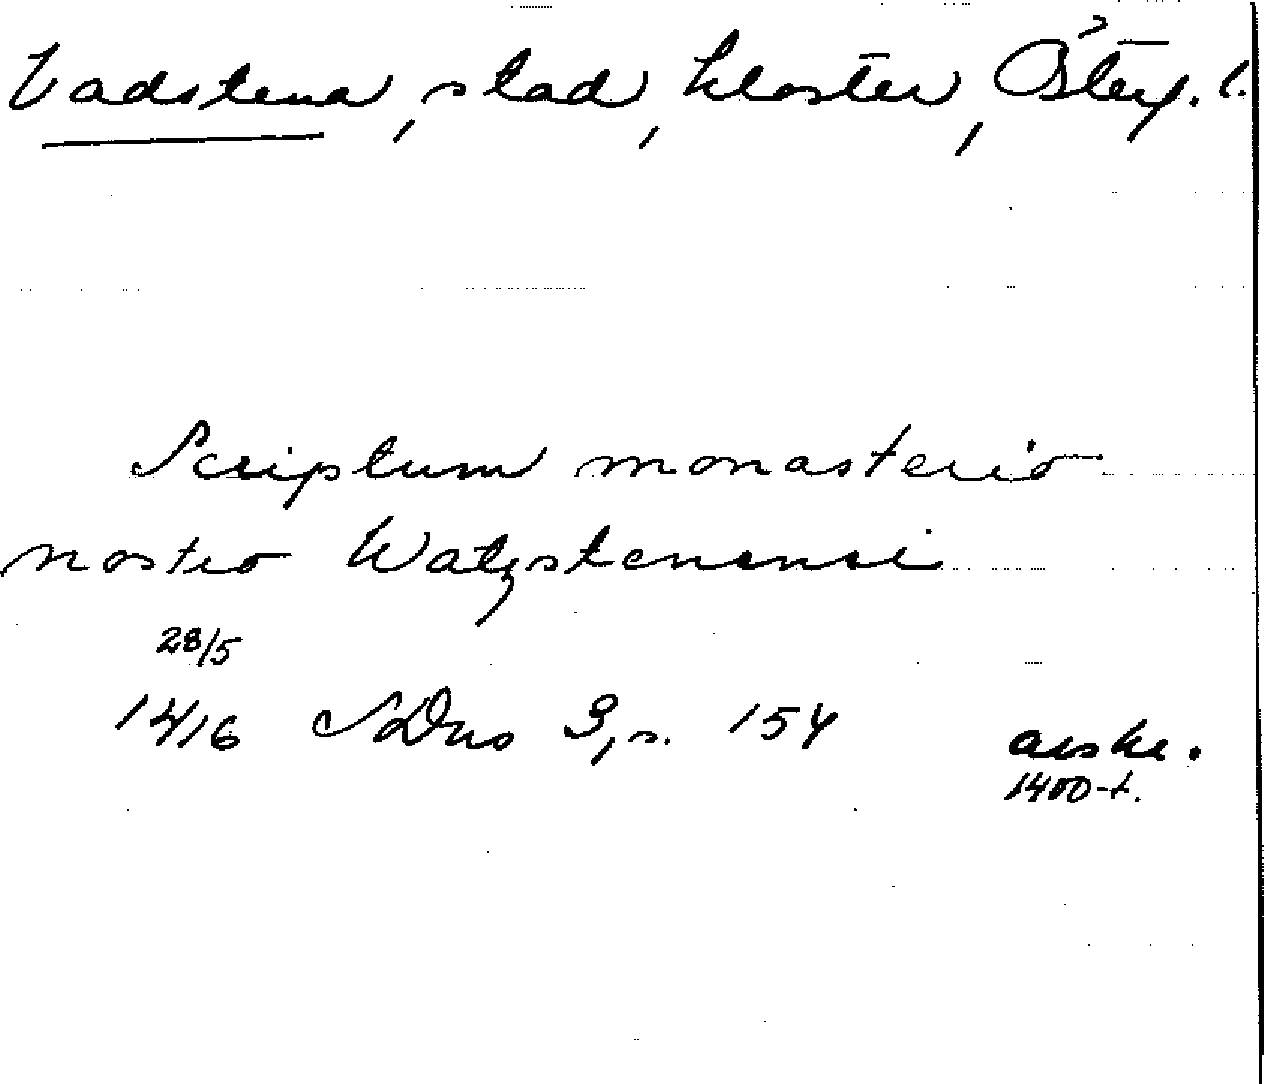 Vadstena, stad, kloster, Österg. l.
Scriptum monasterio
nostro Watzstenensi
28/5
1416 SDns 3, s. 154
avskr.
1400-t.